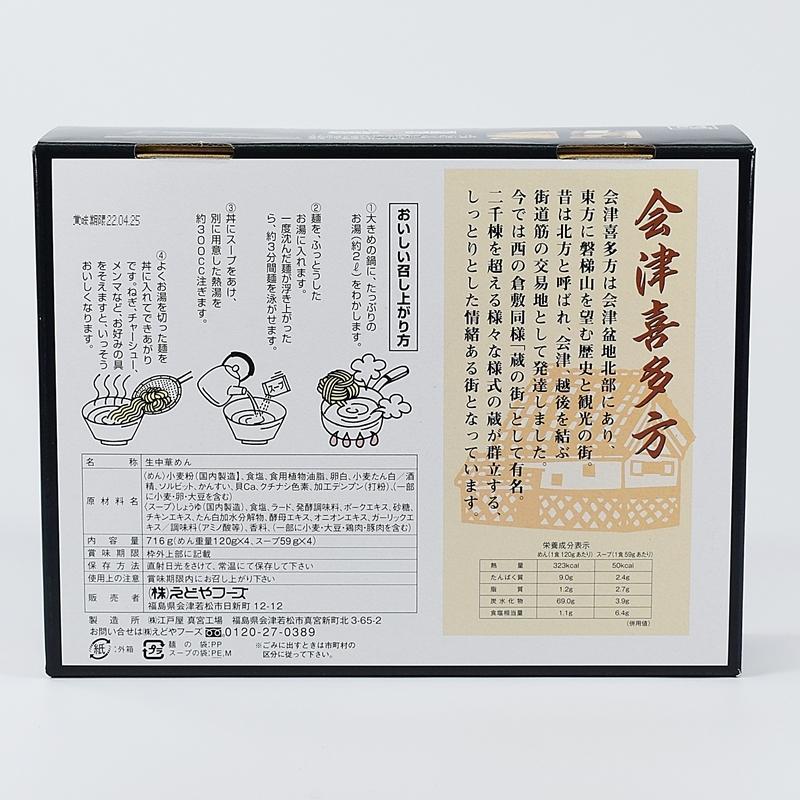 会津喜多方
会津喜多方は会津盆地北部にあり、
東方に磐梯山を望む歴史と観光の街。
昔は北方と呼ばれ、会津・越後を結ぶ
街道筋の交易地として発達しました。
今では西の倉敷同様「蔵の街」として有名。
二千棟を超える様々な様式の蔵が群立する、
しっとりとした情緒ある街となっています
おいしい召し上がり方
①大きめの鍋に、たっぷりの
お湯(約2ℓ)をわかします。
②麺を、ふっとうした
お湯に入れます。
一度沈んだ麺が浮き上がった
ら、約3分間麺を泳がせます。
③丼にスープをあけ、
別に用意した熱湯を
約300CC注ぎます。
④よくお湯を切った麺を
丼に入れてできあがり
です。ねぎ、チャーシュー、
メンマなど、お好みの具
をそえますと、いっそう
おいしくなります。
賞味期限22.04.25
スープ
名称 生中華めん
原材料名 (めん)小麦粉(国内製造)、食塩、食用植物油脂、卵白、小麦たん白/酒
精、ソルビット、かんすい、貝Ca、クチナシ色素、加工デンプン(打粉)、(一部
に小麦・卵・大豆を含む)
(スープ)しょうゆ(国内製造)、食塩、ラード、発酵調味料、ポークエキス、砂糖、
チキンエキス、たん白加水分解物、酵母エキス、オニオンエキス、ガーリックエ
キス/調味料(アミノ酸等)、香料、(一部に小麦・大豆・鶏肉・豚肉を含む)
内容量 716g(めん重量120g×4、スープ59g×4)
賞味期限 枠外上部に記載
保存方法 直射日光をさけて、常温にて保存して下さい
使用上の注意 賞味期限内にお召し上がり下さい
販売者 (株)えどやフーズ
福島県会津若松市日新町12-12
製造所 ㈱江戸屋 真宮工場 福島県会津若松市真宮新町北3-65-2
お問い合せは㈱えどやフーズ 0120-27-0389
紙 :外箱
プラ 麺の袋:PP
スープの袋:PE,M
※ごみに出すときは市町村の
区分に従って下さい。
栄養成分表示
めん(1食120gあたり) スープ(1食59gあたり)
熱量 323kcal 50kcal
たんぱく質 9.0g 2.4g
脂質 1.2g 2.7g
炭水化物 69.0g 3.9g
食塩相当量 1.1g 6.4g